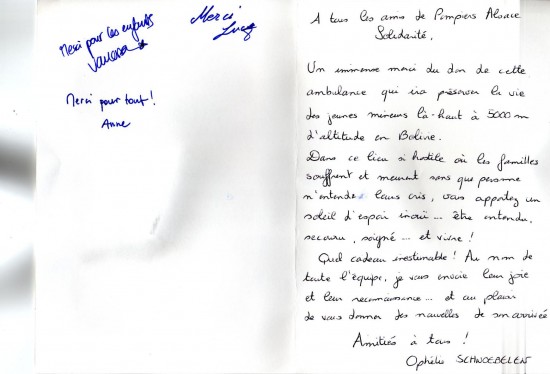 Merci pour les enfants
Vanessa
Merci
Lucas
Merci pour tout !
Anne
A tous les amis de Pompiers Alsace
Solidarité.
Un immense merci du don de cette
ambulance qui ira préserver la vie
des jeunes mineurs là-haut à 5000 m
d'altitude en Bolivie.
Dans ce lieu si hostile où les familles
souffrent et meurent sans que personne
n'entende leurs cris, vous apportez un
soleil d'espoir inouï... être entendu,
secouru, soigné... et vivre !
Quel cadeau inestimable ! Au nom de
toute l'équipe, je vous envoie leur joie
et leur reconnaissance... et au plaisir
de vous donner des nouvelles de son arrivée
Amitiés à tous !
Ophélie SCHNOEBELEN